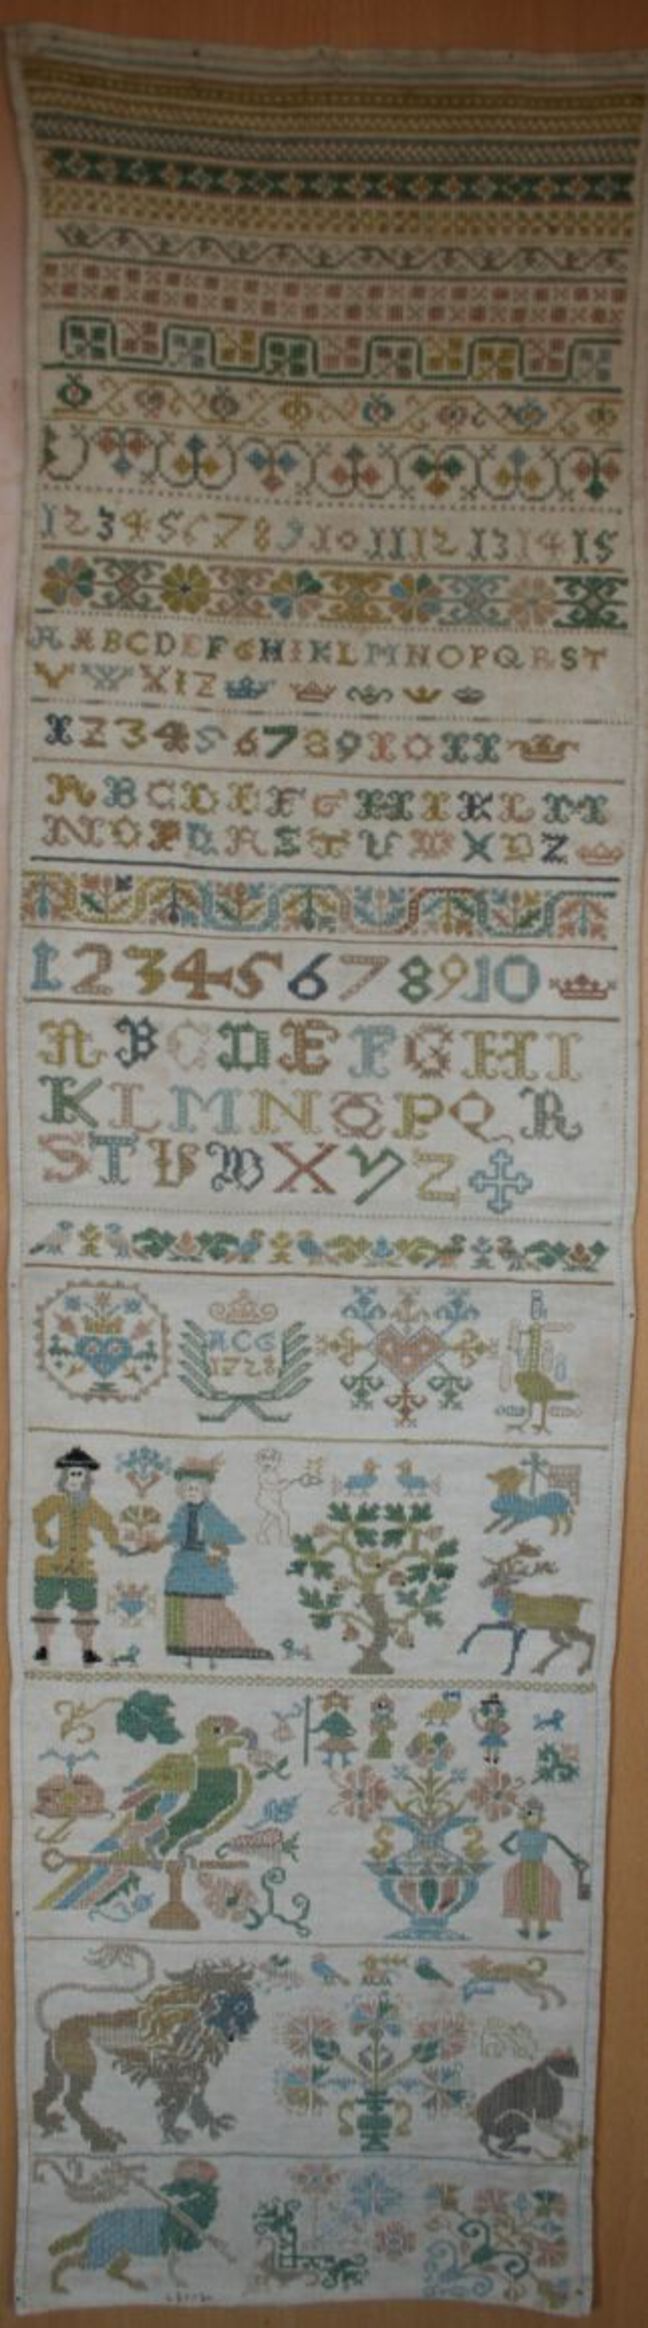 1 2 3 4 5 6 7 8 9 10 11 12 13 14 15
A A B C D E F G H I K L M N O P Q R S T
V W X I Z
1 2 3 4 5 6 7 8 9 10 11
A B C D E F G H I K L M
N O P Q R S T U W X Y Z
1 2 3 4 5 6 7 8 9 10
A B C D E F G H I
K L M N O P Q R
S T U W X Y Z
ACG
1728